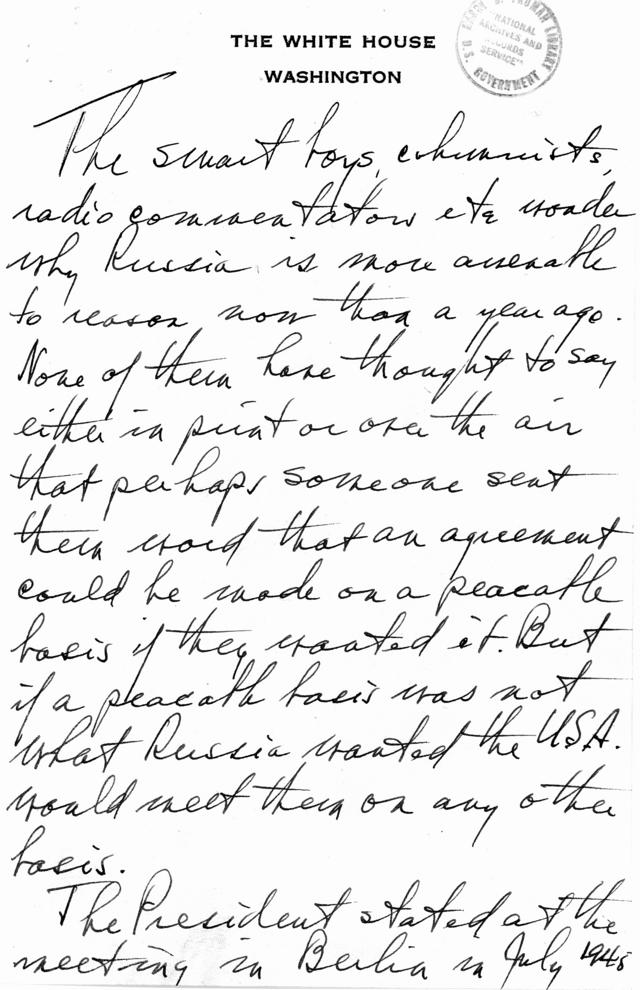 THE WHITE HOUSE
WASHINGTON
HARRY S. TRUMAN LIBRARY
"NATIONAL
ARCHIVES AND
RECORDS
SERVICE"
U.S. GOVERNMENT
The smart boys, columnists,
radio commentators etc wonder
why Russia is more amenable
to reason now than a year ago.
None of them have thought to say
either in print or over the air
that perhaps someone sent
them word that an agreement
could be made on a peacable
basis if they wanted it. But
if a peacable basis was not
what Russia wanted the U.S.A.
would meet them on any other
basis.
The President stated at the
meeting in Berlin in July 1945